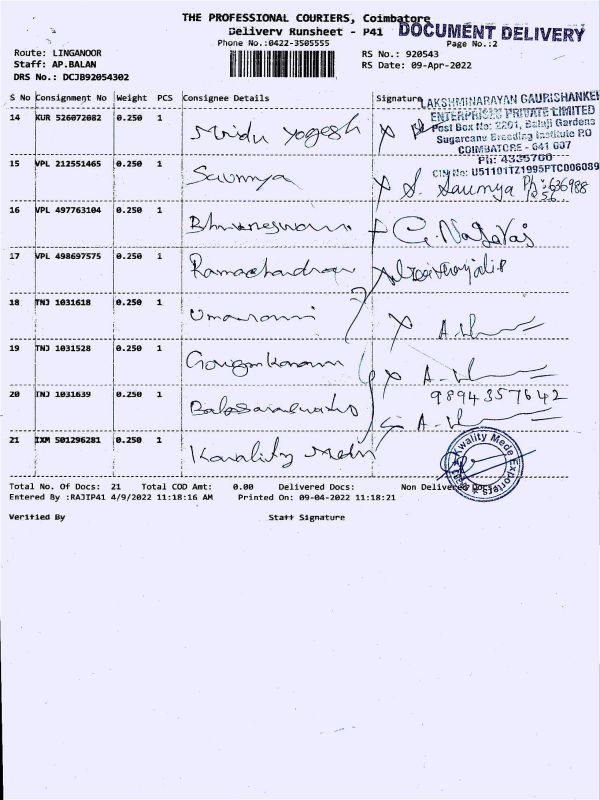 THE PROFESSIONAL COURIERS, Coimbatore
Delivery Runsheet - P41
DOCUMENT DELIVERY
Phone No.:0422-3505555
Page No.:2
Route: LINGANOOR
RS No.: 920543
Staff: AP.BALAN
RS Date: 09-Apr-2022
DRS No.: DCJB92054302
S No Consignment No Weight PCS Consignee Details Signature
LAKSHMINARAYAN GAURISHANKER
ENTERPRISES PRIVATE LIMITED
Post Box No: 2201, Balaji Gardens
Sugarcane Breeding Institute P.O
COIMBATORE - 641 007
Ph: 4335700
CIN No: U51101TZ1995PTC006089
14 KUR 526072082 0.250 1 Mridu Yogesh
15 VPL 212551465 0.250 1 Saumya S. Saumya Ph: 636988
16 VPL 497763104 0.250 1 Bhuvaneswari G. Nagaraj
17 VPL 498697575 0.250 1 Ramachandran
18 TNJ 1031618 0.250 1 Umarani
19 TNJ 1031528 0.250 1
9894357642
20 TNJ 1031639 0.250 1
21 IXM 501296281 0.250 1 Kwality Mede
Kwality Mede Exporters
Total No. Of Docs: 21 Total COD Amt: 0.00 Delivered Docs: Non Delivered Docs:
Entered By :RAJIP41 4/9/2022 11:18:16 AM Printed On: 09-04-2022 11:18:21
Verified By Staff Signature